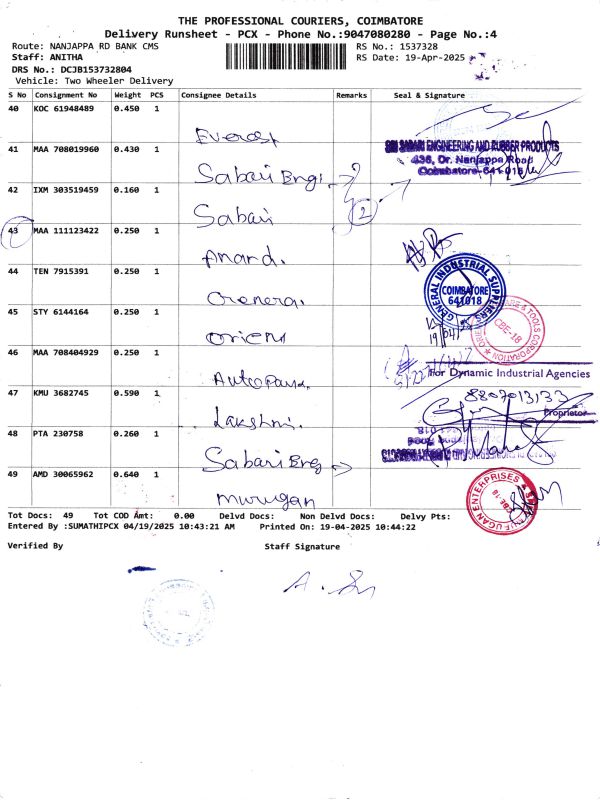 THE PROFESSIONAL COURIERS, COIMBATORE
Delivery Runsheet - PCX - Phone No.:9047080280 - Page No.:4
Route: NANJAPPA RD BANK CMS
RS No.: 1537328
Staff: ANITHA
RS Date: 19-Apr-2025
DRS No.: DCJB153732804
Vehicle: Two Wheeler Delivery
S No Consignment No Weight PCS Consignee Details Remarks Seal & Signature
40 KOC 61948489 0.450 1
Everest
41 MAA 708019960 0.430 1
SRI SABARI ENGINEERING AND RUBBER PRODUCTS
436, Dr. Nanjappa Road
Coimbatore-641 018
Sabari Engi
42 IXM 303519459 0.160 1
Sabari
2
43 MAA 111123422 0.250 1
Anand.
44 TEN 7915391 0.250 1
General
GENERAL INDUSTRIAL SUPPLIERS
COIMBATORE
641018
45 STY 6144164 0.250 1
Orient
19/04/
& TOOLS CORPORATION
CBE-18
46 MAA 708404929 0.250 1
For Dynamic Industrial Agencies
47 KMU 3682745 0.590 1
8807013133
Proprietor
Lakshmi.
48 PTA 230758 0.260 1
Sabari Eng
49 AMD 30065962 0.640 1
Murugan
MURUGAN ENTERPRISES
CBE-18
Tot Docs: 49 Tot COD Amt: 0.00 Delvd Docs: Non Delvd Docs: Delvy Pts:
Entered By :SUMATHIPCX 04/19/2025 10:43:21 AM Printed On: 19-04-2025 10:44:22
Verified By Staff Signature